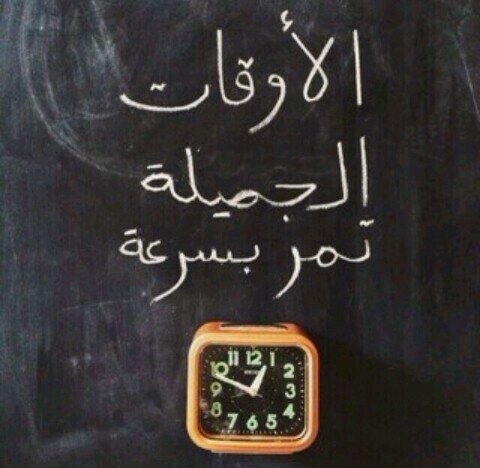 الأوقات
الجميلة
تمر بسرعة
11 12 1
10 2
9 3
8 4
7 6 5